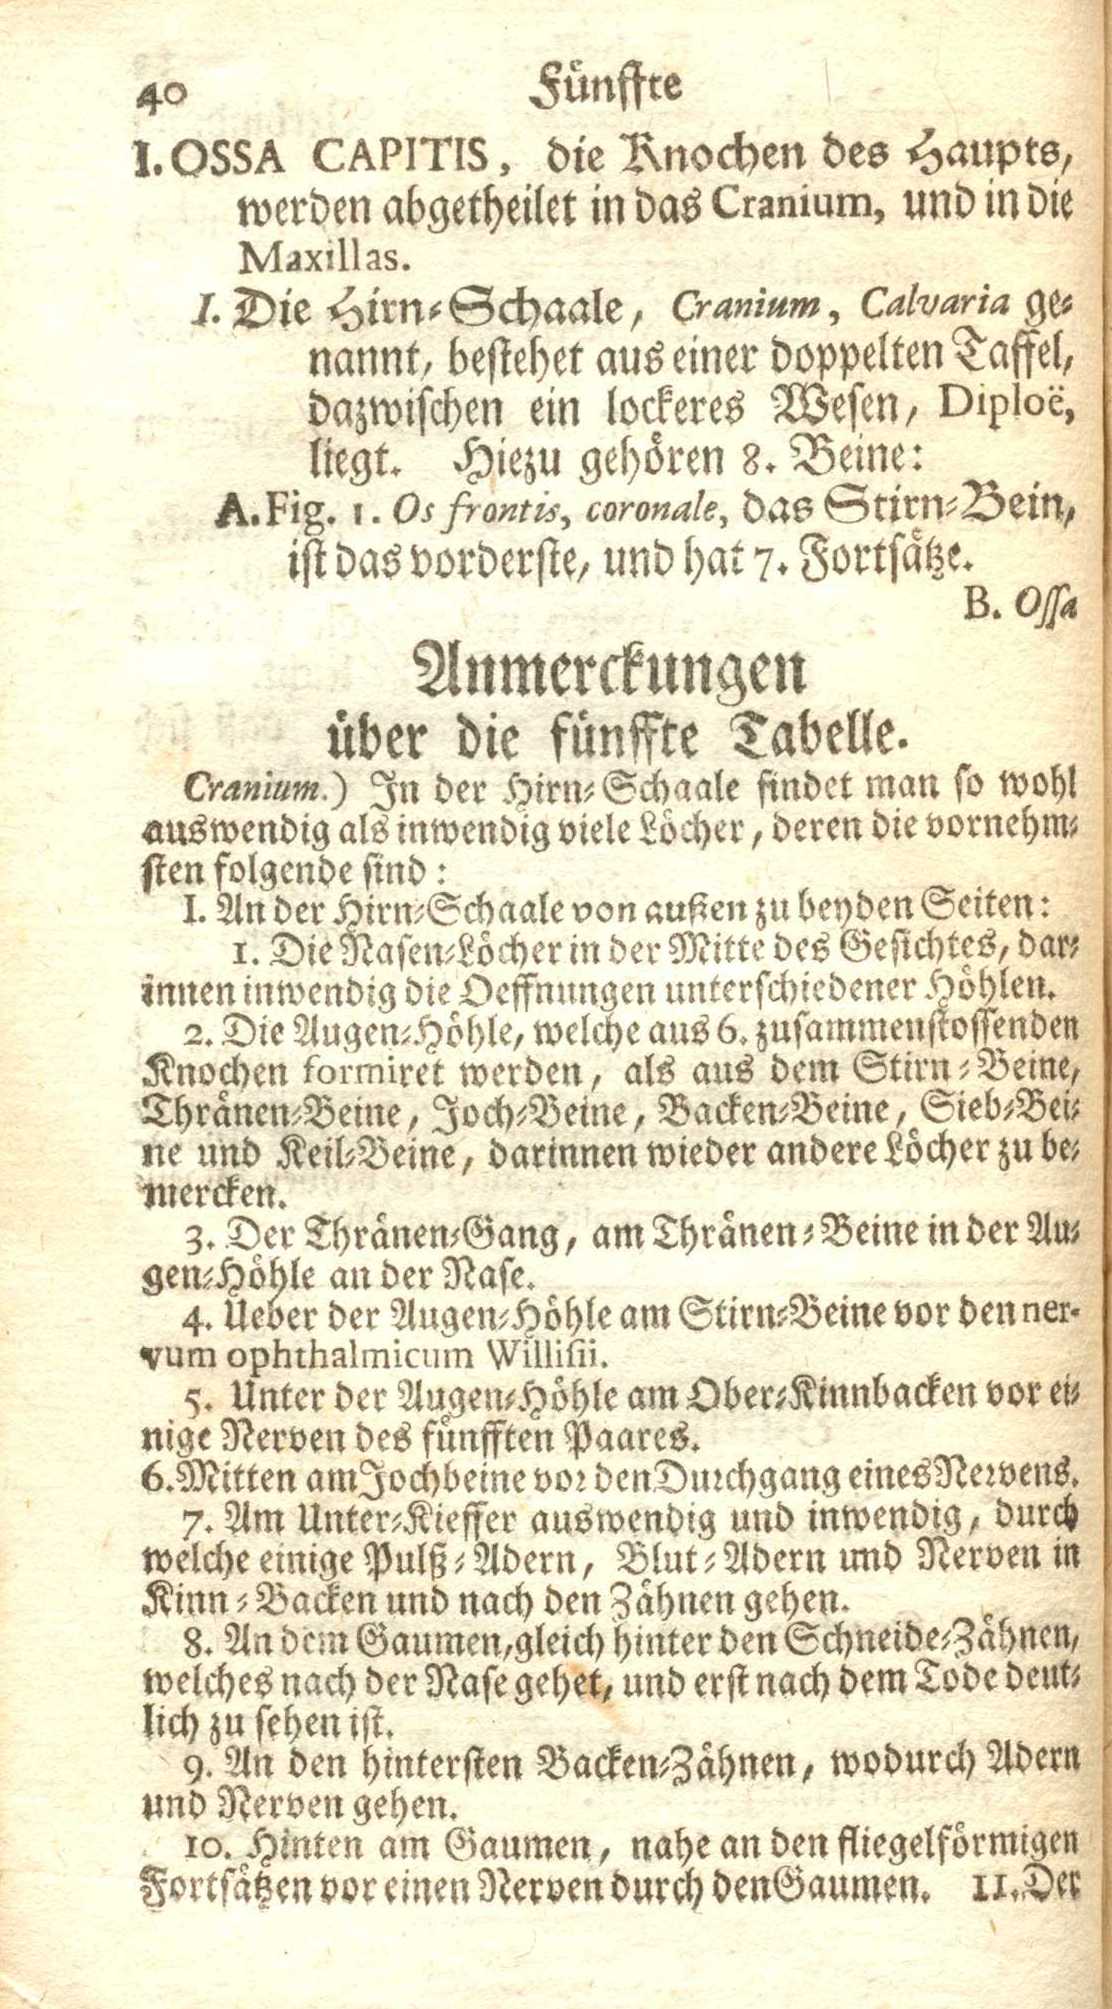 40 Fünffte
I. OSSA CAPITIS, die Knochen des Haupts,
werden abgetheilet in das Cranium, und in die
Maxillas.
I. Die Hirn-Schaale, Cranium, Calvaria ge-
nannt, bestehet aus einer doppelten Taffel,
dazwischen ein lockeres Wesen, Diploë,
liegt. Hiezu gehören 8. Beine:
A. Fig. 1. Os frontis, coronale, das Stirn-Bein,
ist das vorderste, und hat 7. Fortsätze.
B. Ossa
Anmerckungen
über die fünffte Tabelle.
Cranium.) In der Hirn-Schaale findet man so wohl
auswendig als inwendig viele Löcher, deren die vornehm-
sten folgende sind:
I. An der Hirn-Schaale von außen zu beyden Seiten:
1. Die Nasen-Löcher in der Mitte des Gesichtes, dar-
innen inwendig die Oeffnungen unterschiedener Höhlen.
2. Die Augen-Höhle, welche aus 6. zusammenstossenden
Knochen formiret werden, als aus dem Stirn-Beine,
Thränen-Beine, Joch-Beine, Backen-Beine, Sieb-Bei-
ne und Keil-Beine, darinnen wieder andere Löcher zu be-
mercken.
3. Der Thränen-Gang, am Thränen-Beine in der Au-
gen-Höhle an der Nase.
4. Ueber der Augen-Höhle am Stirn-Beine vor den ner-
vum ophthalmicum Willisii.
5. Unter der Augen-Höhle am Ober-Kinnbacken vor ei-
nige Nerven des fünfften Paares.
6. Mitten am Jochbeine vor den Durchgang eines Nervens.
7. Am Unter-Kieffer auswendig und inwendig, durch
welche einige Pulß-Adern, Blut-Adern und Nerven in
Kinn-Backen und nach den Zähnen gehen.
8. An dem Gaumen, gleich hinter den Schneide-Zähnen,
welches nach der Nase gehet, und erst nach dem Tode deut-
lich zu sehen ist.
9. An den hintersten Backen-Zähnen, wodurch Adern
und Nerven gehen.
10. Hinten am Gaumen, nahe an den fliegelförmigen
Fortsätzen vor einen Nerven durch den Gaumen. 11. Der